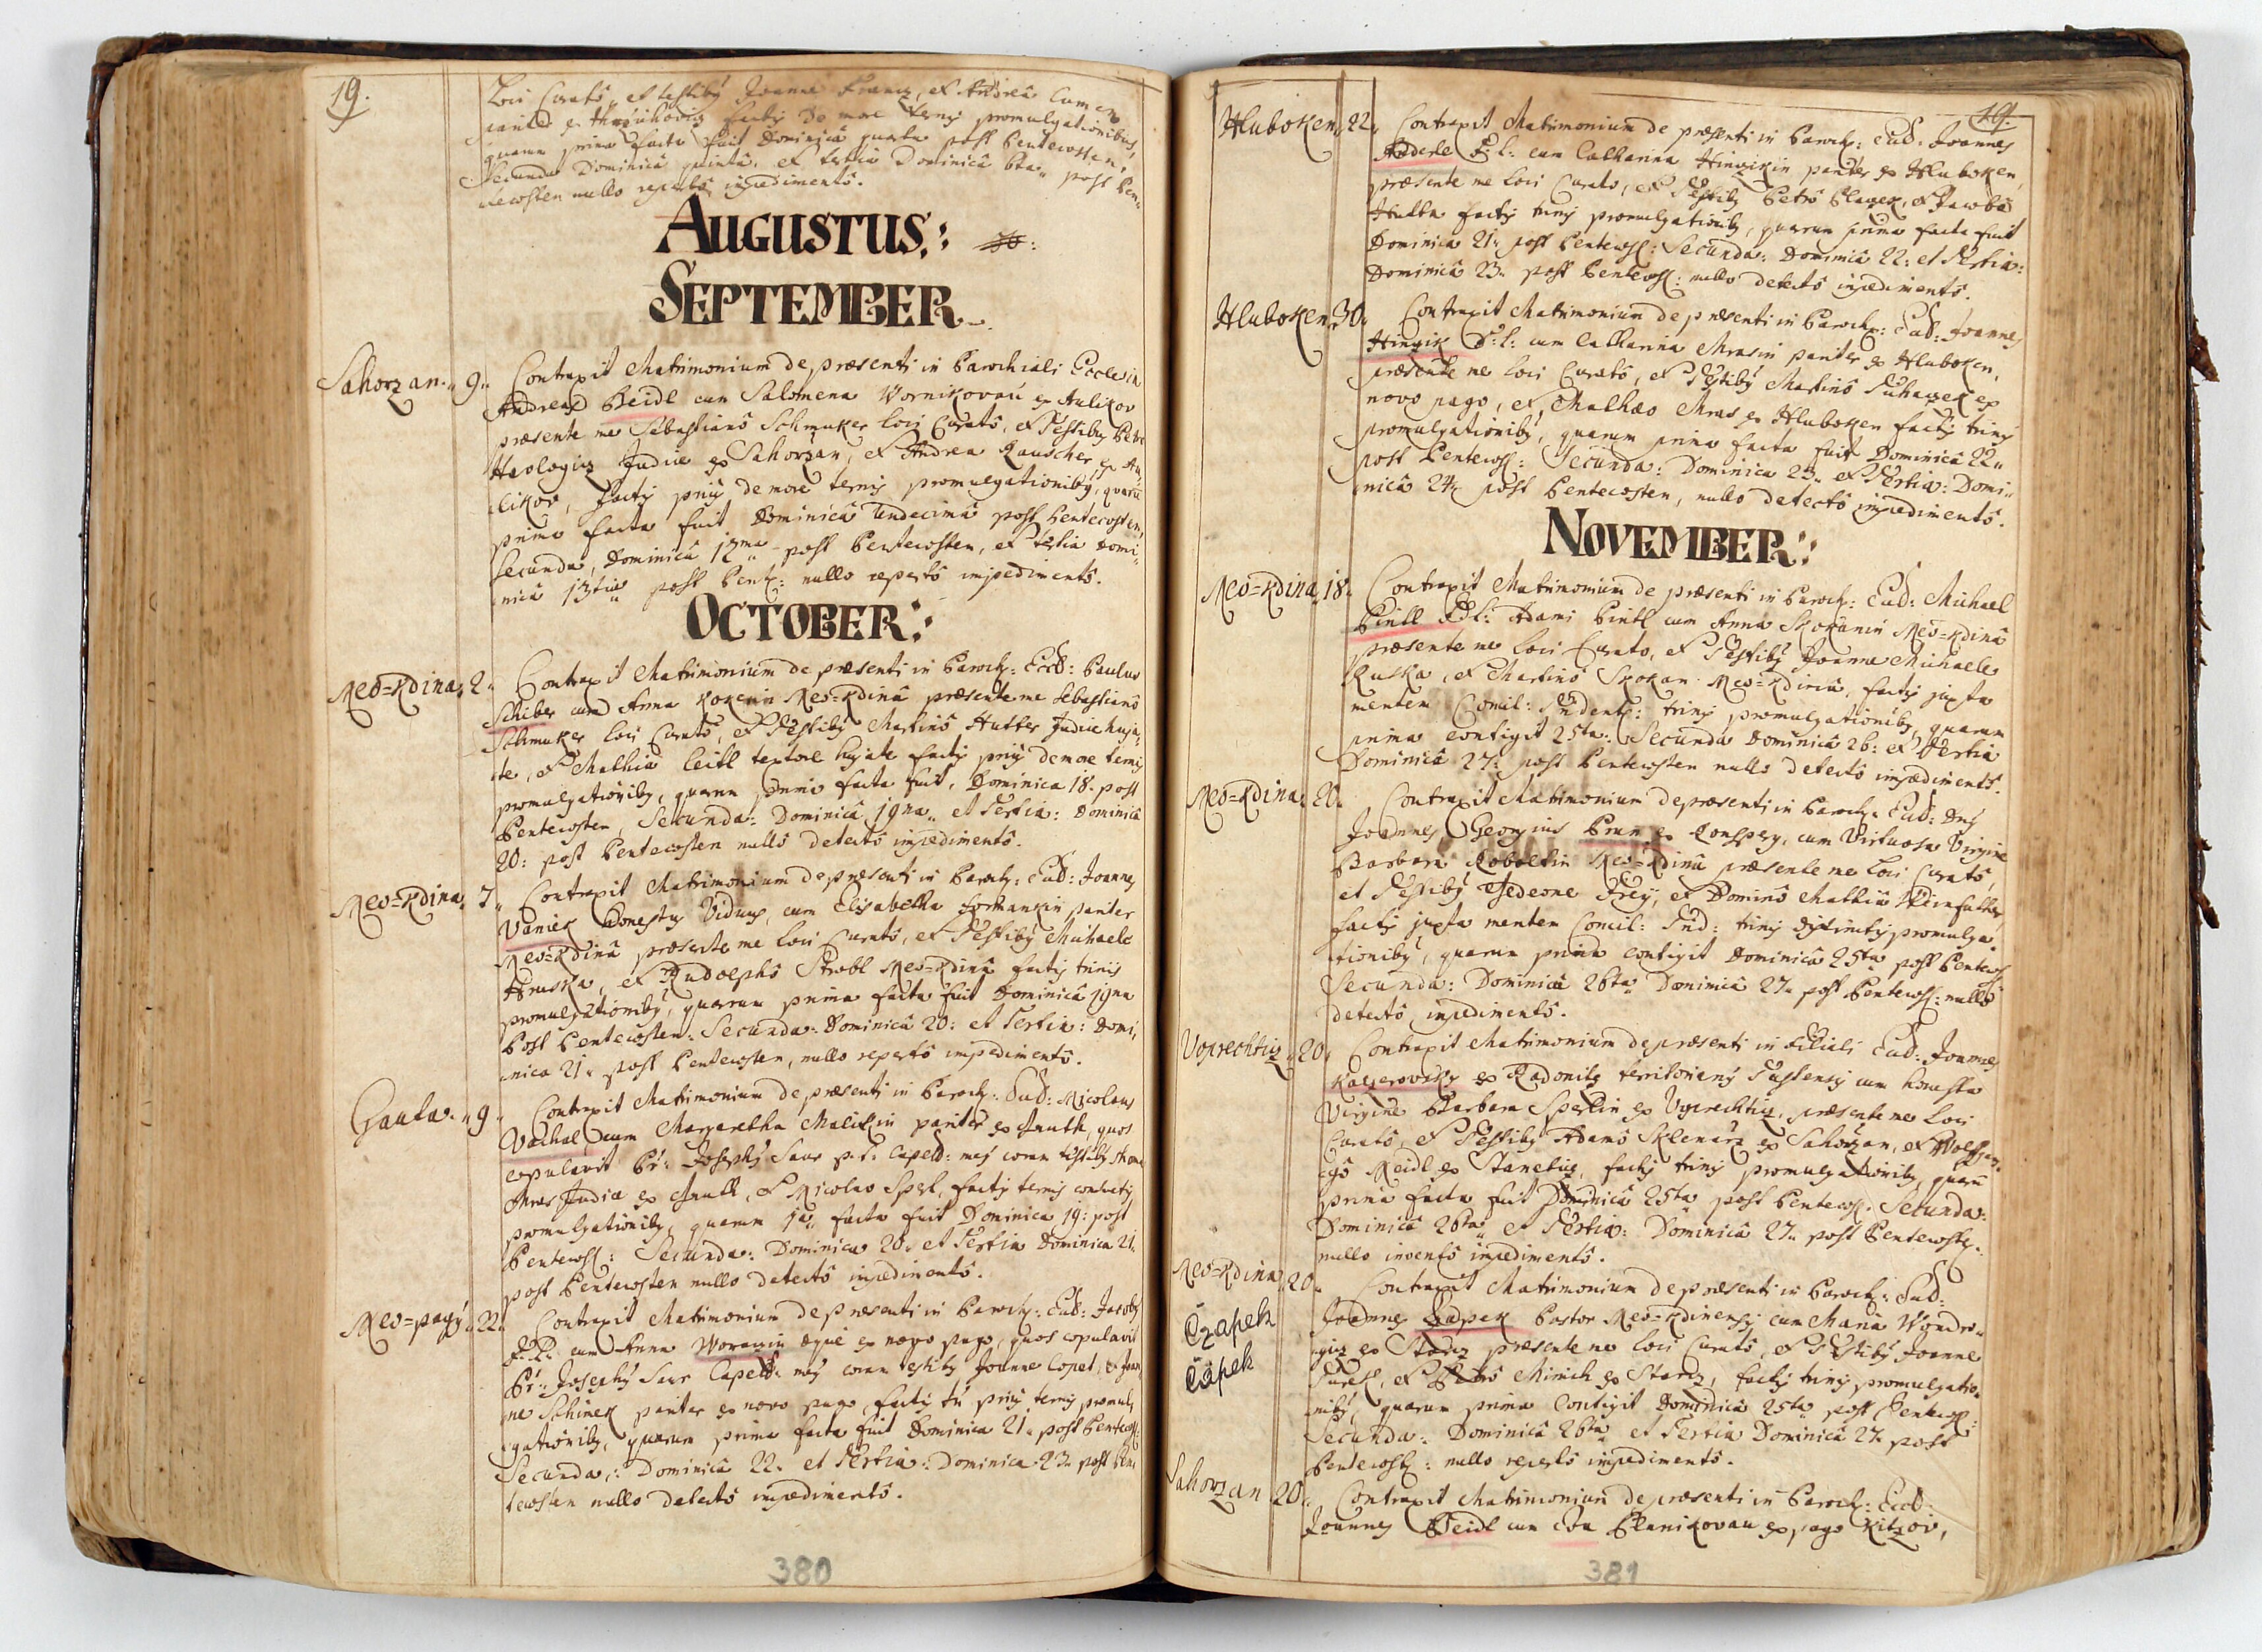 19.
Loci Curatô, et testiby Joanne et Andrea
factis de more ternis promulgationibus,
quarum prima facta fuit Dominicâ quarta post Pentecosten,
Secunda Dominicâ quintâ, et tertia Dominicâ 6ta post Pen-
tecosten nullo repertô impedimentô.
AUGUSTUS:
SEPTEMBER
Sahorzan. 9. Contraxit Matrimonium de præsenti in Parochiali Ecclesia
Andreas Beidl cum Salomena Wornikovau ex Aulikov
præsente me Sebastianô Schmuker loci Curatô, et Testiby Petro
Judice ex Sahorzan, et Andrea Rauscher ex Au-
likov, factis priy de more ternis promulgationiby, quarũ
prima facta fuit Dominicâ Undecimâ post Pentecosten,
Secunda, Dominicâ 12ma post Pentecosten, et tertia Domi-
nicâ 13tia post Pent: nullo repertô impedimentô.
OCTOBER:
Neo=Kdina, 2. Contraxit Matrimonium de præsenti in Paroch: Eccl: Paulus
Schiber cum Anna Kokerin Neo=Kdinâ præsente me Sebastianô
Schmuker loci Curatô, et Testiby Martinô Hutter Judice huja-
te, et Mathia Leitl textore hujate factis priy de more ternis
promulgationiby, quarum prima facta fuit, Dominica 18. post
Pentecosten, Secunda: Dominicâ 19na et Tertia: Dominicâ
20: post Pentecosten nullô detectô impedimentô.
Neo=Kdina, 7. Contraxit Matrimonium de præsenti in Paroch: Eccl: Joannes
Vaniek Honestus Viduus, cum Elisabetha pariter
Neo=Kdinâ præsente me loci Curatô, et Testiby Michaele
Hruska, et Rudolphô Strobl Neo=Kdinâ factis trinis
promulgationiby, quarum prima facta fuit Dominicâ 19na
Post Pentecosten: Secunda: Dominicâ 20: et Tertia: Domi-
nica 21. post Pentecosten, nullo repertô impedimentô.
Gauta. 9. Contraxit Matrimonium de præsenti in Paroch: Eccl: Nicolaus
Vachal cum Margaretha Malikin pariter ex Gauth, quos
copulavit Josephus Saur p.t. Capell: meus coram testiby
Mras Judice ex Gauth, et Nicolao Sperl, factis ternis
promulgationiby, quarum 1a facta fuit Dominica 19: post
Pentecost: Secunda: Dominica 20. et Tertia Dominica 21.
post Pentecosten nullo detectô impedimentô.
Neo=pagy. 22. Contraxit Matrimonium de præsenti in Paroch: Eccl: Jacoby
cum Anna Woraczin æque ex novo pago, quos copulavit
Josephy Saur Capell: mey coram testiby Joanne Copet, et Joan-
ne Schimek pariter ex novo pago, factis priy ternis promul-
gationiby, quarum prima facta fuit Dominica 21. post Pentecost:
Secunda: Dominicâ 22. et Tertia: Dominica 23. post Pen-
tecosten nullo detectô impedimentô.
380
19.
Hluboken, 22. Contraxit Matrimonium de præsenti in Paroch: Eccl: Joannes
Anderle S: L: cum Catharina Hinzikin pariter ex Hluboken,
præsente me loci Curato, et Testiby Petrô Blazek, et Jacobô
Hutta factis trinis promulgationiby, quarum prima facta fuit
Dominica 21. post Pentecost: Secunda: Dominicâ 22: et Tertia:
Dominicâ 23. post Pentecost: nullo detectô impedimentô.
Hluboken, 30. Contraxit Matrimonium de præsenti in Paroch: Eccl: Joannes
Hinzik S: L: cum Catharina Mrasin pariter ex Hluboken,
præsente me loci Curatô, et Testiby Martinô Suhajek ex
novo pago, et Mathæo Mras ex Hluboken factis trinis
promulgationiby, quarum prima facta fuit Dominicâ 22
post Pentecost: Secunda: Dominica 23. et Tertia: Domi-
nicâ 24. post Pentecosten, nullo detectô impedimentô.
NOVEMBER:
Neo=Kdina, 18. Contraxit Matrimonium de præsenti in Paroch: Eccl: Michael
Bintl S: L: Adami Bintl cum Anna Skokanin Neo=Kdinâ
præsente me loci Curato, et Testiby Joanne Michaele
Ruska, et Martinô Skokan Neo=Kdinâ, factis juxta
mentem Concil: Trident: trinis promulgationiby, quarum
prima contigit 25ta: Secunda Dominicâ 26: et Tertia
Dominicâ 27. post Pentecosten nullo detectô impedimentô.
Neo=Kdina. 20. Contraxit Matrimonium de præsenti in Paroch: Eccl: Dny
Joannes Georgius ex Ronsperg, cum Virtuosa Virgine
Barbara Neo=Kdinâ præsente me loci Curatô,
et Testiby Gedeone Frey, et Dominô Mathia
factis juxta mentem Concil: Trid: trinis distinctis promulga-
tioniby, quarum prima contigit Dominicâ 25ta post Pentecost:
Secunda: Dominicâ 26ta Dominicâ 27. post Pentecost: nullo
detectô impedimentô.
Uprechtiz. 20. Contraxit Matrimonium de præsenti in Filiali Eccl: Joannes
Kaczerovsky ex Radonitz territoriens Tustensis cum honesta
Virgine Barbara Sperlin ex Uprechtiz, præsente me loci
Curatô, et Testiby Adamô Sklenarz ex Sahorzan, et Wolfgan-
gô Meidl ex Stanetiz, factis trinis promulgationiby, quarũ
prima facta fuit Dominicâ 25ta post Pentecost. Secunda:
Dominicâ 26ta et Tertia: Dominicâ 27. post Pentecost:
nullo inventô impedimentô.
Neo=Kdina 20. Contraxit Matrimonium de præsenti in Paroch: Eccl:
Czapek
Čapek
Joannes Czapek Pastor Neo=Kdinensis cum Maria Wondro-
ex Starcz præsente me loci Curatô, et Testiby Joanne
Turek, et Petrô Minich ex Starcz, factis trinis promulgatio-
niby, quarum prima contigit Dominicâ 25ta post Pentecost:
Secunda: Dominicâ 26ta et Tertia Dominicâ 27. post
Pentecost: nullo repertô impedimentô.
Sahorzan 20. Contraxit Matrimonium de præsenti in Paroch: Eccl:
Joannes Beidl cum Eva Planikovau ex pago Kitzov,
381